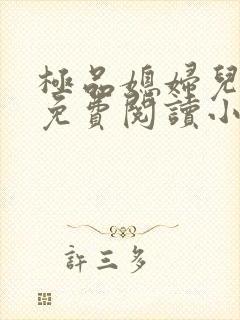 極品媳婦兒
免費閱讀小
許三多